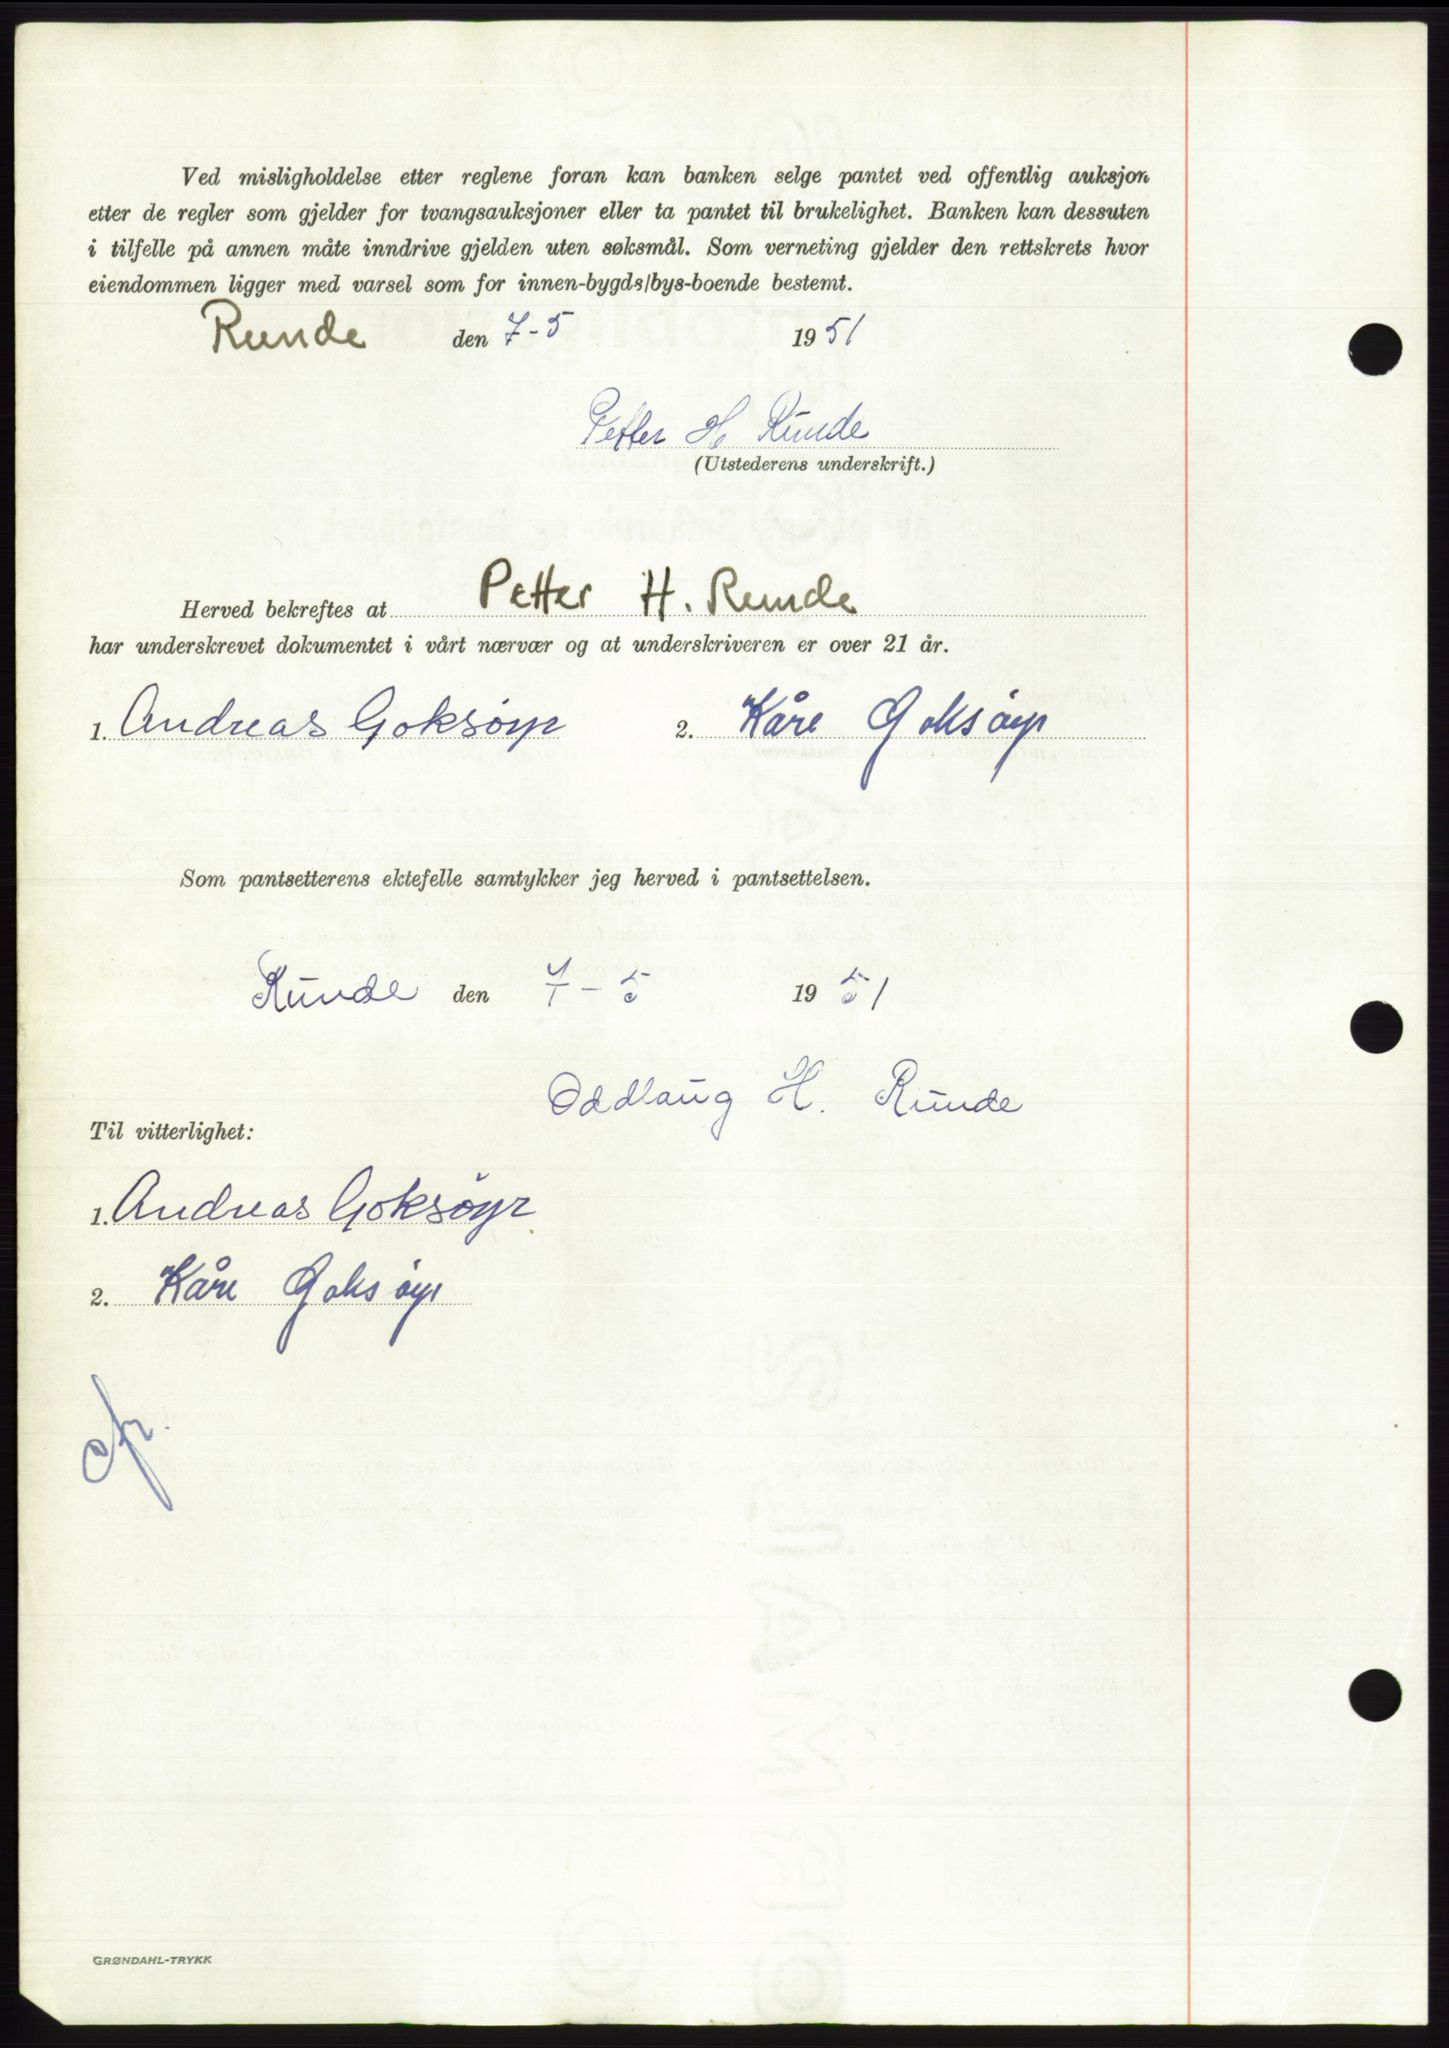 Ved misligholdelse etter reglene foran kan banken selge pantet ved offentlig auksjon
etter de regler som gjelder for tvangsauksjoner eller ta pantet til brukelighet. Banken kan dessuten
i tilfelle på annen måte inndrive gjelden uten søksmål. Som verneting gjelder den rettskrets hvor
eiendommen ligger med varsel som for innen-bygds/bys-boende bestemt.
Runde den 7-5 1951
Petter H Runde
(Utstederens underskrift.)
Herved bekreftes at Petter H. Runde
har underskrevet dokumentet i vårt nærvær og at underskriveren er over 21 år.
1. Andreas Goksöyr 2. Kåre Goksöyr
Som pantsetterens ektefelle samtykker jeg herved i pantsettelsen.
Runde den 7-5 1951
Oddlaug H. Runde
Til vitterlighet:
1. Andreas Goksöyr
2. Kåre Goksöyr
GRØNDAHL-TRYKK